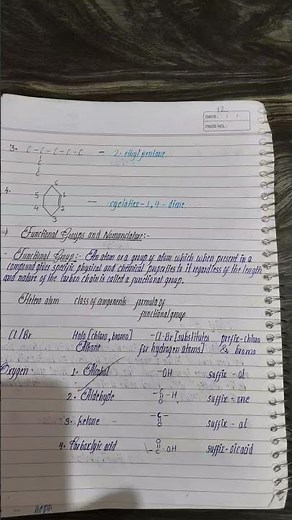 12
DATE: / /
PAGE NO.:
3. C-C-C-C-C - 2-ethyl pentane
C
C
4. C
5 1
4 2
3
- cyclohex-1,4-diene
→ Functional Groups and Nomenclature:-
- Functional Group:- An atom or a group of atom which when present in a
compound gives specific physical and chemical properties to it regardless of the length
and nature of the carbon chain is called a functional group.
Hetero atom class of compounds formula of
functional group
Cl/Br Halo [chloro, bromo] -Cl-Br [substitutes prefix-chloro
Alkane for hydrogen atoms] & bromo
Oxygen 1. Alcohol -OH suffix-ol
2. Aldehyde -C-H suffix-one
O
3. Ketone -C- suffix-al
O
4. Carboxylic acid O
-C-OH suffix-oic acid